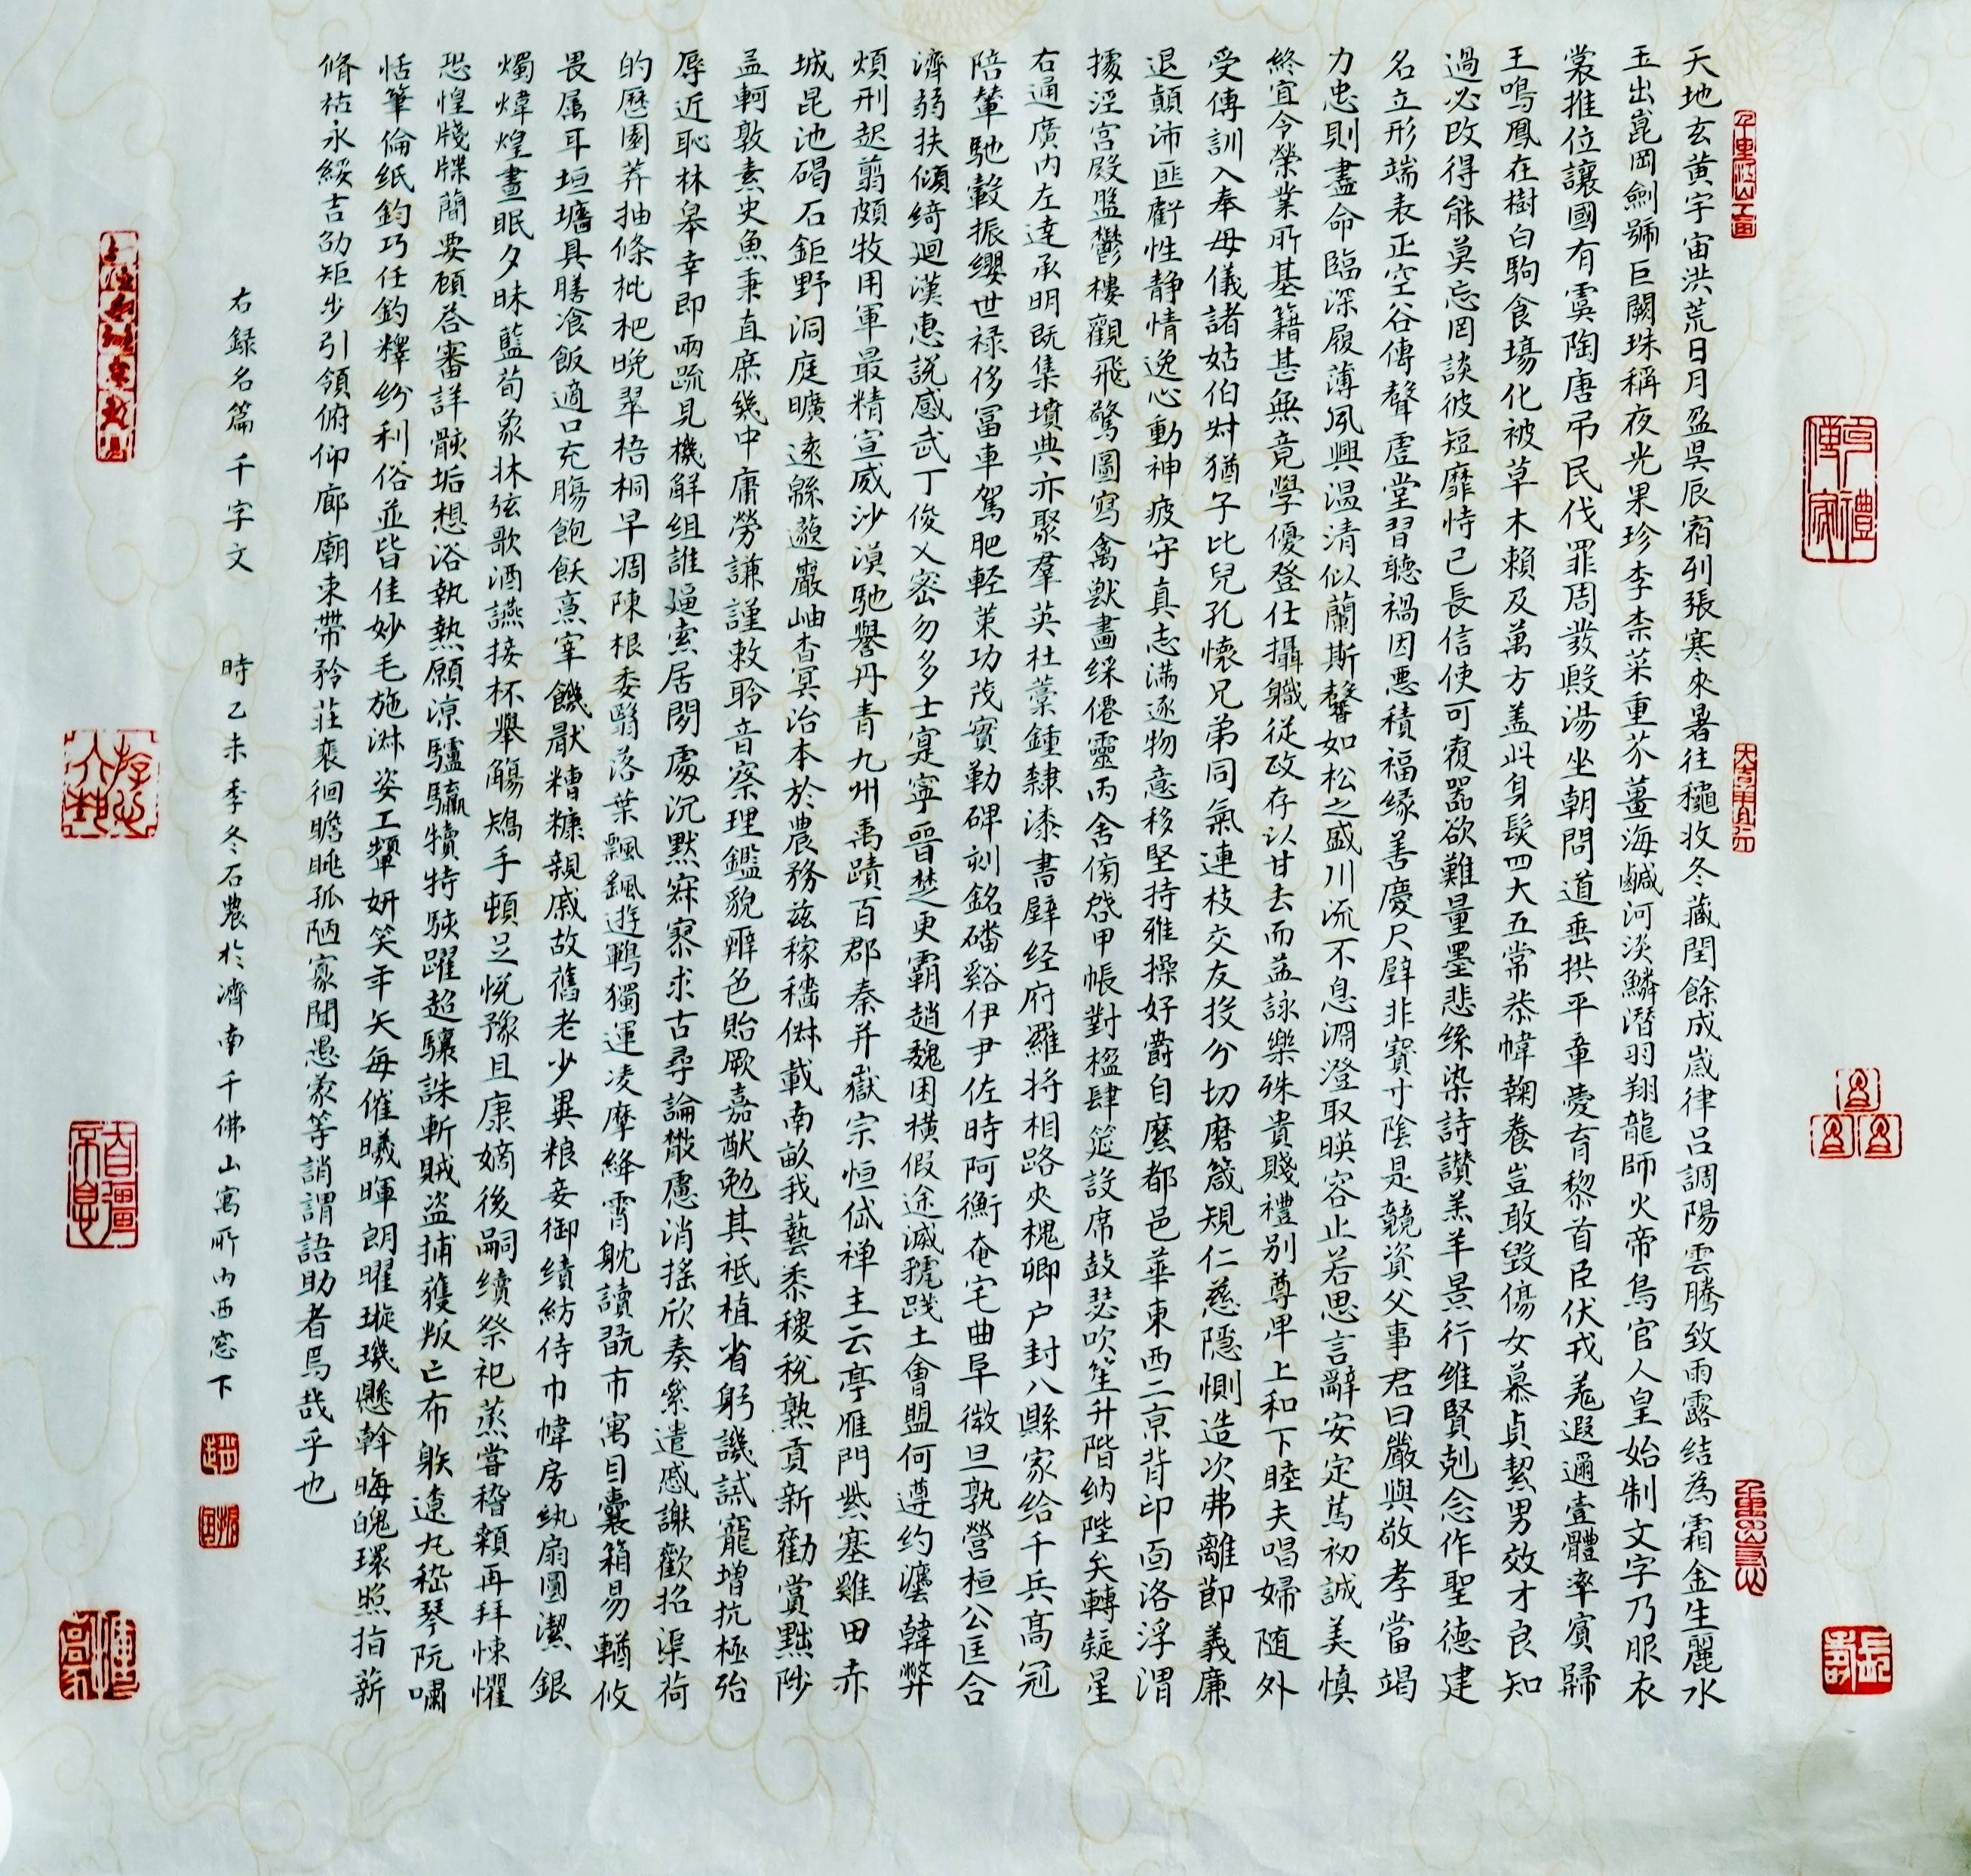 天地玄黄宇宙洪荒日月盈昃辰宿列張寒來暑往穐收冬藏閏餘成歲律吕調陽雲騰致雨露结為霜金生麗水
玉出崑岡劍號巨闕珠稱夜光果珍李柰菜重芥薑海鹹河淡鱗潛羽翔龍師火帝鳥官人皇始制文字乃服衣
裳推位讓國有虞陶唐弔民伐罪周發殷湯坐朝問道垂拱平章愛育黎首臣伏戎羌遐邇壹體率賓歸
王鳴鳳在樹白駒食場化被草木賴及萬方盖此身髮四大五常恭幃鞠養豈敢毀傷女慕貞絜男效才良知
過必改得能莫忘罔談彼短靡恃己長信使可覆器欲難量墨悲絲染詩讃羔羊景行維賢剋念作聖德建
名立形端表正空谷傳聲虛堂習聽禍因悪積福緣善慶尺璧非寶寸陰是競資父事君曰嚴與敬孝當竭
力忠則盡命臨深履薄夙興温清似蘭斯馨如松之盛川流不息淵澄取暎容止若思言辭安定篤初誠美慎
終宜令榮業所基籍甚無竟學優登仕攝職從政存以甘去而益詠樂殊貴賤禮别尊卑上和下睦夫唱婦随外
受傅訓入奉母儀諸姑伯叔猶子比兒孔懷兄弟同氣連枝交友投分切磨箴規仁慈隱惻造次弗離節義廉
退顛沛匪虧性静情逸心動神疲守真志满逐物意移堅持雅操好爵自縻都邑華東西二京背邙面洛浮渭
據涇宫殿盤鬱樓觀飛驚圖寫禽獸畫綵僊靈丙舍傍啓甲帳對楹肆筵設席鼓瑟吹笙升階纳陛弁轉疑星
右通廣内左達承明既集墳典亦聚羣英杜藁鍾隸漆書壁经府羅将相路夾槐卿户封八縣家给千兵高冠
陪輦馳轂振纓世禄侈冨車駕肥輕策功茂實勒碑刻銘磻谿伊尹佐時阿衡奄宅曲阜微旦孰營桓公匡合
濟弱扶傾綺迴漢惠説感武丁俊乂密勿多士寔寧晉楚更霸趙魏困横假途滅虢踐土會盟何遵约灋韓弊
煩刑起翦頗牧用軍最精宣威沙漠馳譽丹青九州禹蹟百郡秦并嶽宗恒岱禅主云亭雁門紫塞雞田赤
城昆池碣石鉅野洞庭曠遠緜邈巖岫杳冥治本於農務兹稼穡俶載南畝我藝黍稷税熟貢新勸賞黜陟
孟軻敦素史魚秉直庶幾中庸勞謙謹敕聆音察理鑑貌辨色貽厥嘉猷勉其祗植省躬譏誡寵增抗極殆
辱近恥林皋幸即兩疏見機解組誰逼索居閒處沉默寂寥求古尋論散慮消摇欣奏累遣慼謝歡招渠荷
的歷園莽抽條枇杷晚翠梧桐早凋陳根委翳落葉飄飖遊鵾獨運凌摩絳霄耽讀翫市寓目囊箱易輶攸
畏属耳垣墻具膳飡飯適口充腸飽飫烹宰饑厭糟糠親戚故舊老少異粮妾御績紡侍巾幃房纨扇圓潔銀
燭煒煌晝眠夕昧藍荀象牀弦歌酒讌接杯舉觴矯手頓足悦豫且康嫡後嗣續祭祀蒸嘗稽顙再拜悚懼
恐惶牋牒簡要顧荅審詳骸垢想浴執熱願涼驢騾犢特駭躍超驤誅斬賊盗捕獲叛亡布躲遼丸嵇琴阮嘯
恬筆倫纸鈞巧任釣釋紛利俗並皆佳妙毛施淑姿工顰妍笑年矢每催曦暉朗曜璇璣懸斡晦魄環照指薪
脩祜永綏吉劭矩步引領俯仰廊廟束帶矜莊裵徊瞻眺孤陋寡聞愚蒙等誚謂語助者焉哉乎也
右録名篇千字文 時乙未季冬石農於濟南千佛山寓所内西窓下